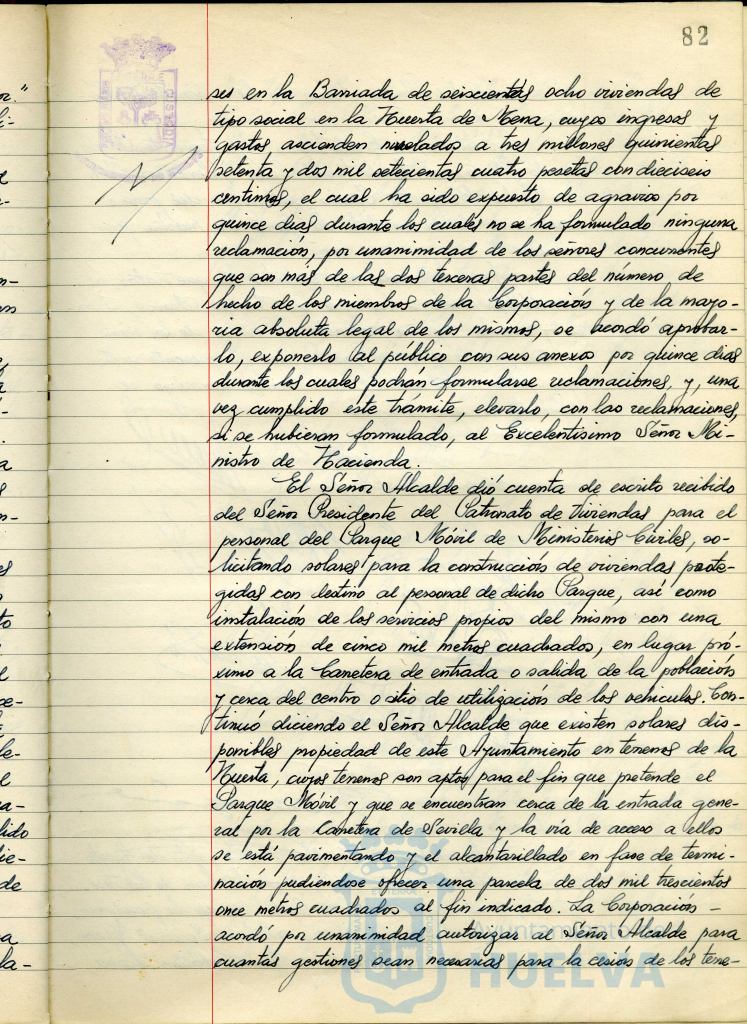 82
ses en la Barriada de seiscientas ocho viviendas de
tipo social en la Huerta de Mena, cuyos ingresos y
gastos ascienden nivelados a tres millones quinientas
setenta y dos mil setecientas cuatro pesetas con dieciseis
centimos, el cual ha sido expuesto de agravios por
quince dias durante los cuales no se ha formulado ninguna
reclamación, por unanimidad de los señores concurrentes
que son más de las dos terceras partes del número de
hecho de los miembros de la Corporación y de la mayo-
ria absoluta legal de los mismos, se acordó aprobar-
lo, exponerlo al público con sus anexos por quince dias
durante los cuales podrán formularse reclamaciones, y, una
vez cumplido este trámite, elevarlo, con las reclamaciones,
si se hubieran formulado, al Excelentisimo Señor Mi-
nistro de Hacienda.
El Señor Alcalde dió cuenta de escrito recibido
del Señor Presidente del Patronato de Viviendas para el
personal del Parque Móvil de Ministerios Civiles, so-
licitando solares para la construcción de viviendas prote-
gidas con destino al personal de dicho Parque, así como
instalación de los servicios propios del mismo con una
extensión de cinco mil metros cuadrados, en lugar pró-
ximo a la Carretera de entrada o salida de la población
y cerca del centro o sitio de utilización de los vehiculos. Con-
tinuó diciendo el Señor Alcalde que existen solares dis-
ponibles propiedad de este Ayuntamiento en terrenos de la
Huerta, cuyos terrenos son aptos para el fin que pretende el
Parque Móvil y que se encuentran cerca de la entrada gene-
ral por la Carretera de Sevilla y la via de acceso a ellos
se está pavimentando y el alcantarillado en fase de termi-
nación pudiendose ofrecer una parcela de dos mil trescientos
once metros cuadrados al fin indicado. La Corporación -
acordó por unanimidad autorizar al Señor Alcalde para
cuantas gestiones sean necesarias para la cesión de los terre-
Ayuntamiento
HUELVA